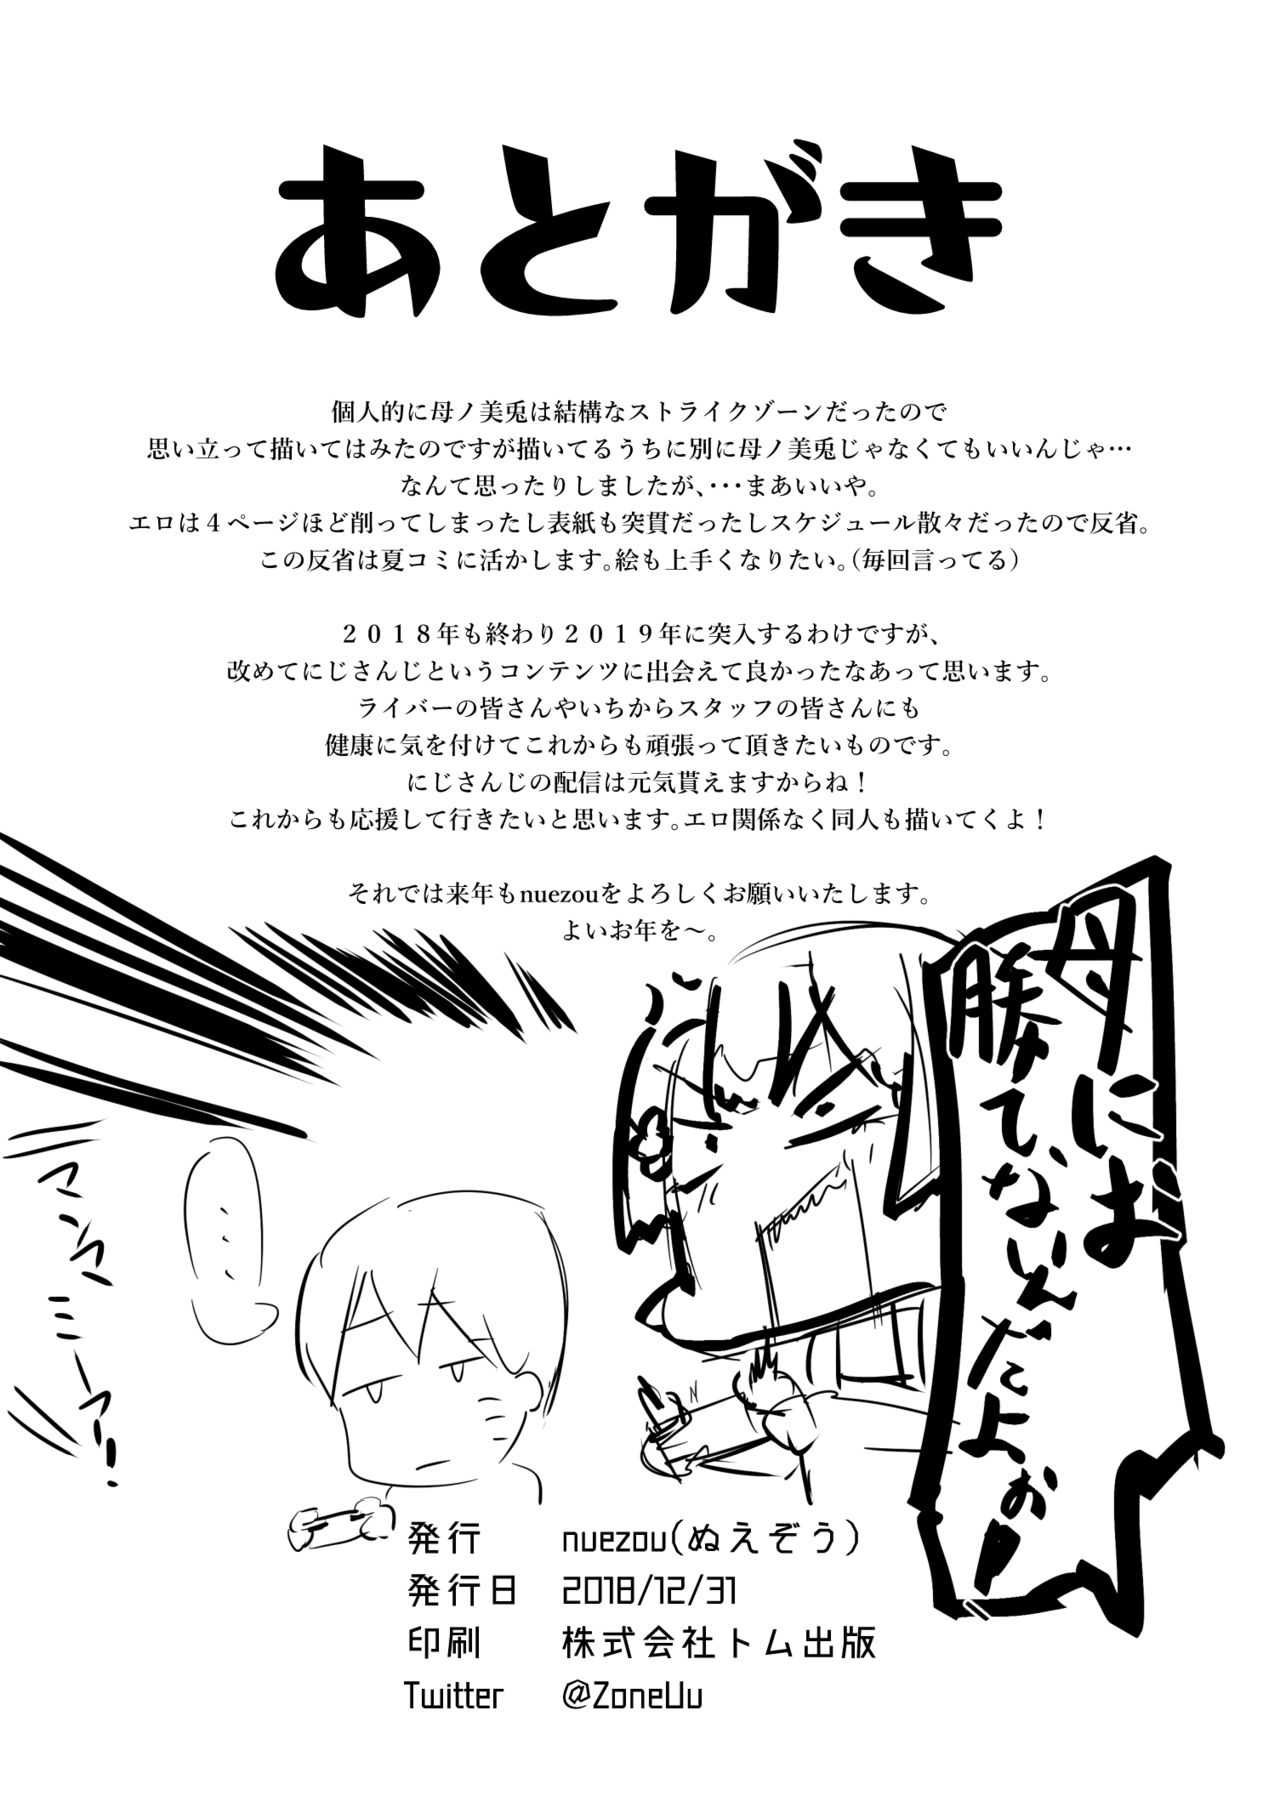 あとがき
個人的に母ノ美兎は結構なストライクゾーンだったので
思い立って描いてはみたのですが描いてるうちに別に母ノ美兎じゃなくてもいいんじゃ…
なんて思ったりしましたが、・・・まあいいや。
エロは４ページほど削ってしまったし表紙も突貫だったしスケジュール散々だったので反省。
この反省は夏コミに活かします。絵も上手くなりたい。（毎回言ってる）
２０１８年も終わり２０１９年に突入するわけですが、
改めてにじさんじというコンテンツに出会えて良かったなあって思います。
ライバーの皆さんやいちからスタッフの皆さんにも
健康に気を付けてこれからも頑張って頂きたいものです。
にじさんじの配信は元気貰えますからね！
これからも応援して行きたいと思います。エロ関係なく同人も描いてくよ！
それでは来年もnuezouをよろしくお願いいたします。
よいお年を〜。
母には
勝てないんだよぉ！
・・・
マンマ
ミーアー！
発行 nuezou(ぬえぞう)
発行日 2018/12/31
印刷 株式会社トム出版
Twitter @ZoneUu